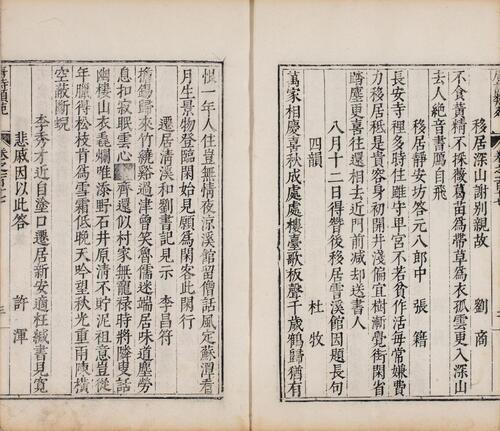 移居深山謝別親故　劉商
不食黃精不採薇葛苗為帶草為衣孤雲更入深山
去人絕音書鴈自飛
移居靜安坊答元八郎中　張籍
長安寺裡多時住雖守卑官不若貧作活每常嫌費
力移居秪是貴容身初開井淺偏宜樹漸覺街閑省
踏塵更喜往還相去近門前減却送書人
八月十二日得替後移居霅溪館因題長句
四韻　杜牧
萬家相慶喜秋成處處樓臺歌板聲千歲鶴歸猶有
恨一年人住豈無情夜涼溪館留僧話風定蘇潭看
月生景物登臨閑始見願為閑客此閑行
遷居清溪和劉書記見示　李昌符
擔錫歸來竹繞谿過津曾笑魯儒迷端居味道塵勞
息扣寂眠雲心齊還似村家無龍祿時將隣叟話
幽棲山衣毳爛唯添野石井原清不貯泥祖意豈從
年臘得松枝肯為雪霜低晚天吟望秋光重雨陣橫
空蔽斷蜺
李秀才近自塗口遷居新安適枉緘書見寬
悲戚因以此答　許渾
唐詩類苑